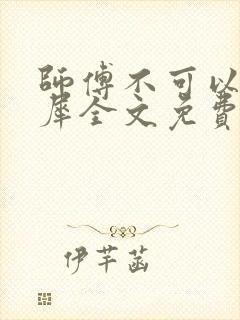 師傅不可以
犀全文免費
伊芊菡